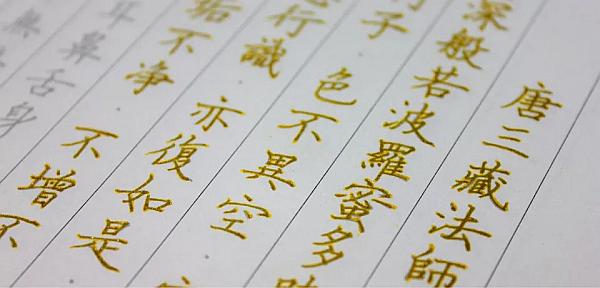 唐三藏法師
深般若波羅蜜多時
子 色不異空
行識 亦復如是
垢不净 不增不
耳鼻舌身
無